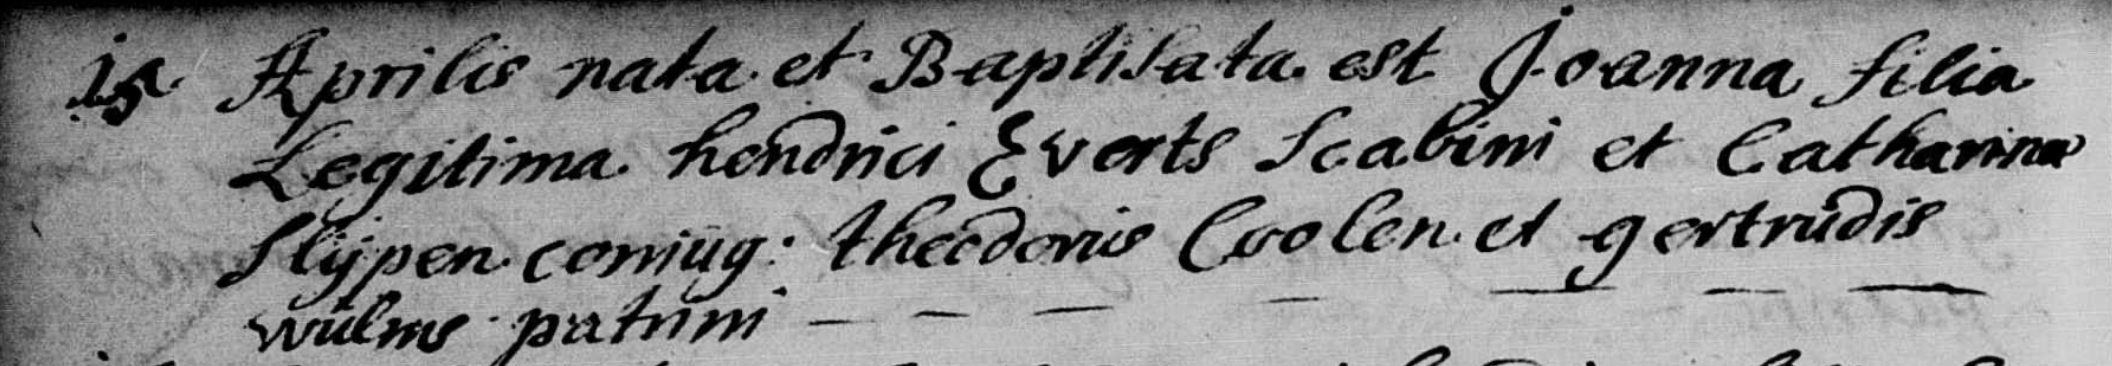 15 Aprilis nata et Baptisata est Joanna filia
Legitima hendrici Everts Scabini et Catharina
Slijpen coniug: theodorus Coolen et gertrudis
wulms patrini